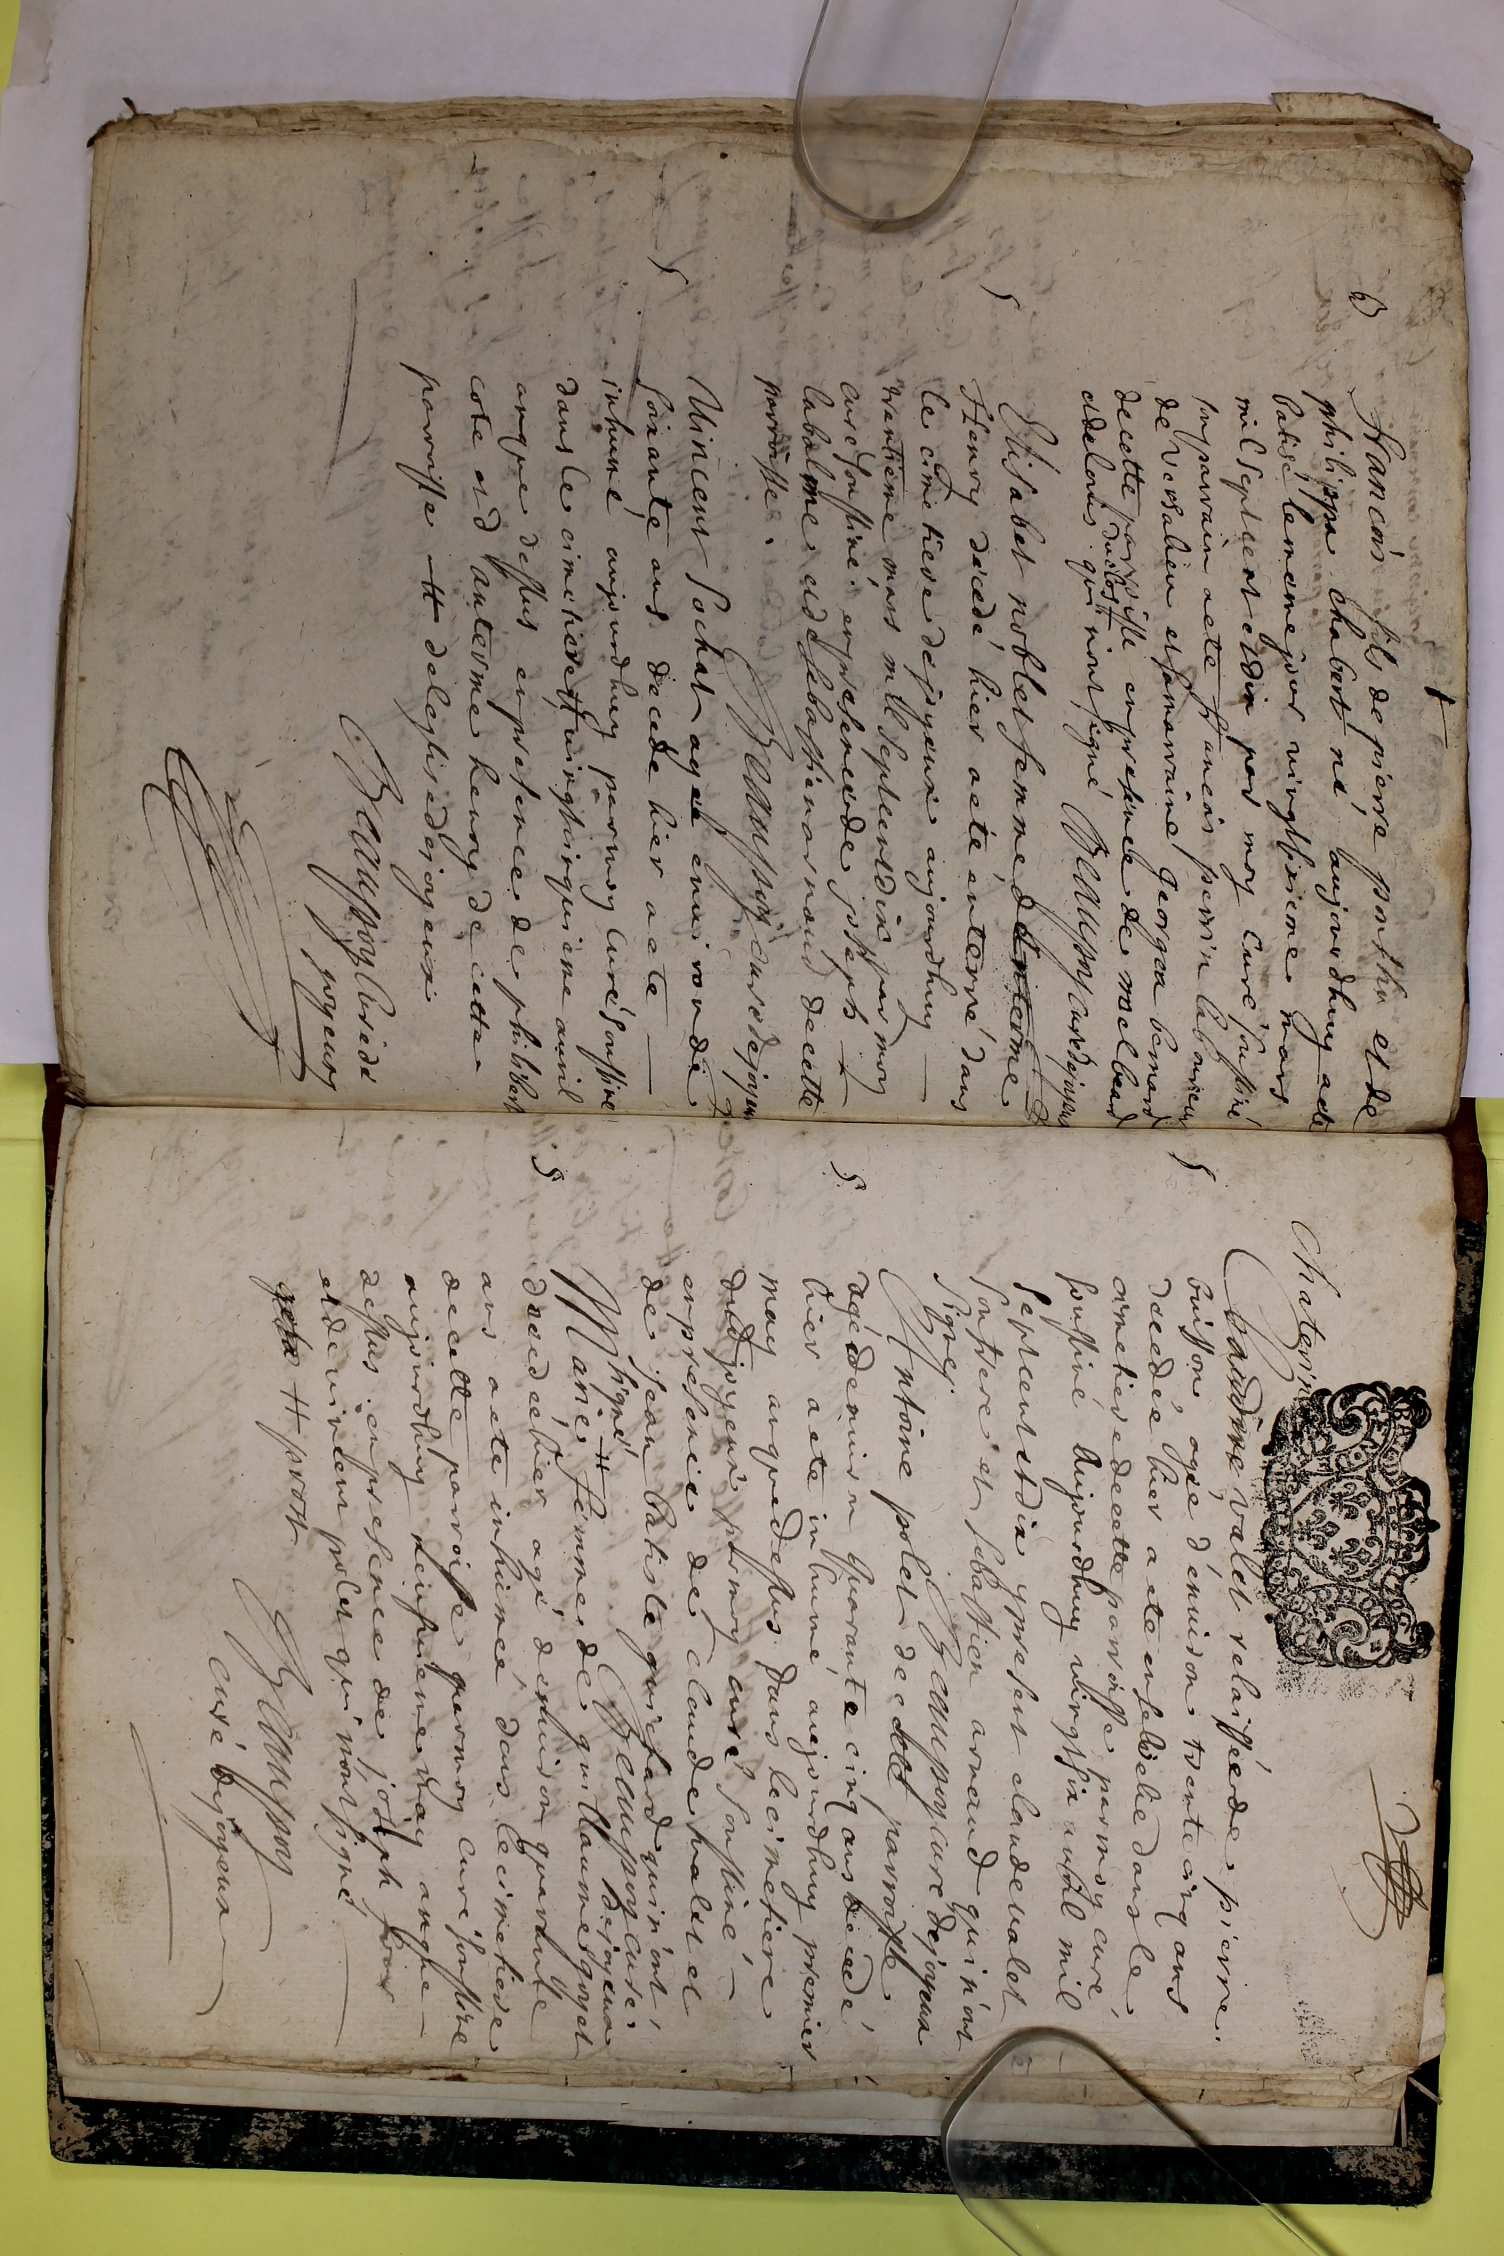 B
francois fils de pierre porthu et de
philippa chabert né aujourdhuy a ete
batisé le meme jour vingtsixieme mars
mil sept cent et dix par moy curé soussiné
son parrain a ete francois perrin laboureur
de versalieu et sa marraine georgea bernard
de cette parroisse en presence de mr
duclos et delorus qui n'ont signé Beaupoy curé de joyeux
S
Elisabet noblet femme d'anterme
Henry décédé hier a été enterré dans
le cimetiere de joyeux aujourdhuy
trantieme mars mil sept cent dix par moy
curé soussiné en presence de joseph
labalme et de sebastien arnaud de cette
parroisse.
Beaupoy curé de joyeux
S
Vincent sochat agé d'environ de
soixante ans décédé hier a ete
inhumé aujourdhuy par moy curé soussiné
dans le cimetiere # vingtcinquieme auril
an que dessus en presence de philibert
cote et d'anterme henry de cette
parroisse # de leglise de joyeux
Beaupoy curé de
joyeux
S
Chaterine
baudire valet relaissée de pierre
buisson, agée d'environ trente cinq ans
decedée hier a ete ensevelie dans le
cimetiere de cette parroisse par moy curé
soussiné aujourdhuy vingtsix auril mil
sept cent et dix y present claude valet
son frere et sebastien arnaud qui n'ont
signé. Beaupoy curé de joyeux
S
Antoine polet de cette parroisse
agé d'environ quarante cinq ans decedé
hier a ete inhumé aujourdhuy premier
may an que dessus dans le cimetiere
dud joyeux par moy curé soussiné
en presence de claude valet et
de jean batiste guichard qui n'ont
signé # Beaupoy curé de joyeux
S
Marie femme de guillaume goyet
decedée hier agé d'environ quarante
ans a ete inhumée dans le cimetiere
de cette parroisse par moy curé soussiné
aujourdhuy neufvieme may an que
dessus en presence de joseph
et de vincent polet qui n'ont signé
# prost
Beaupoy
curé de joyeux